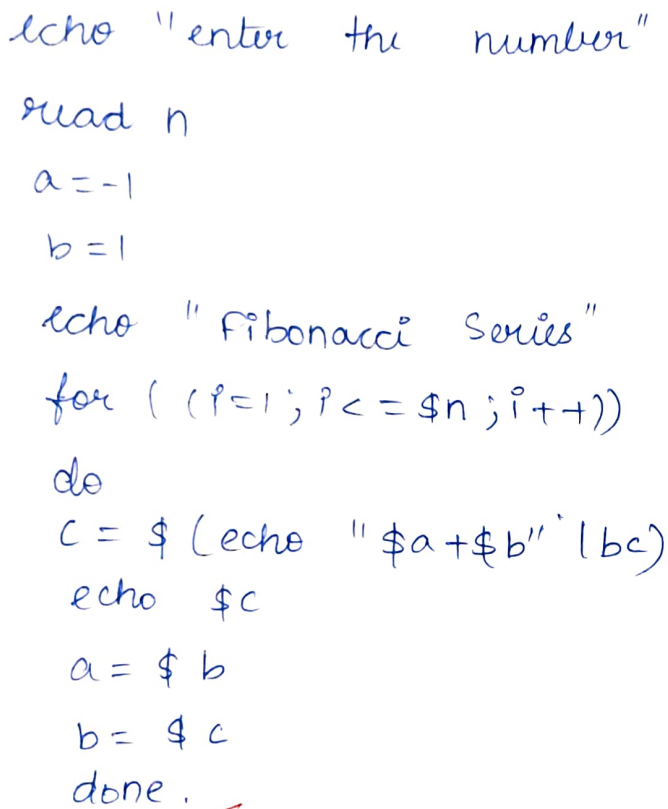 echo "enter the number"
read n
a=-1
b=1
echo "Fibonacci Series"
for ((i=1;i<=$n;i++))
do
c=$(echo "$a+$b"|bc)
echo $c
a=$b
b=$c
done.